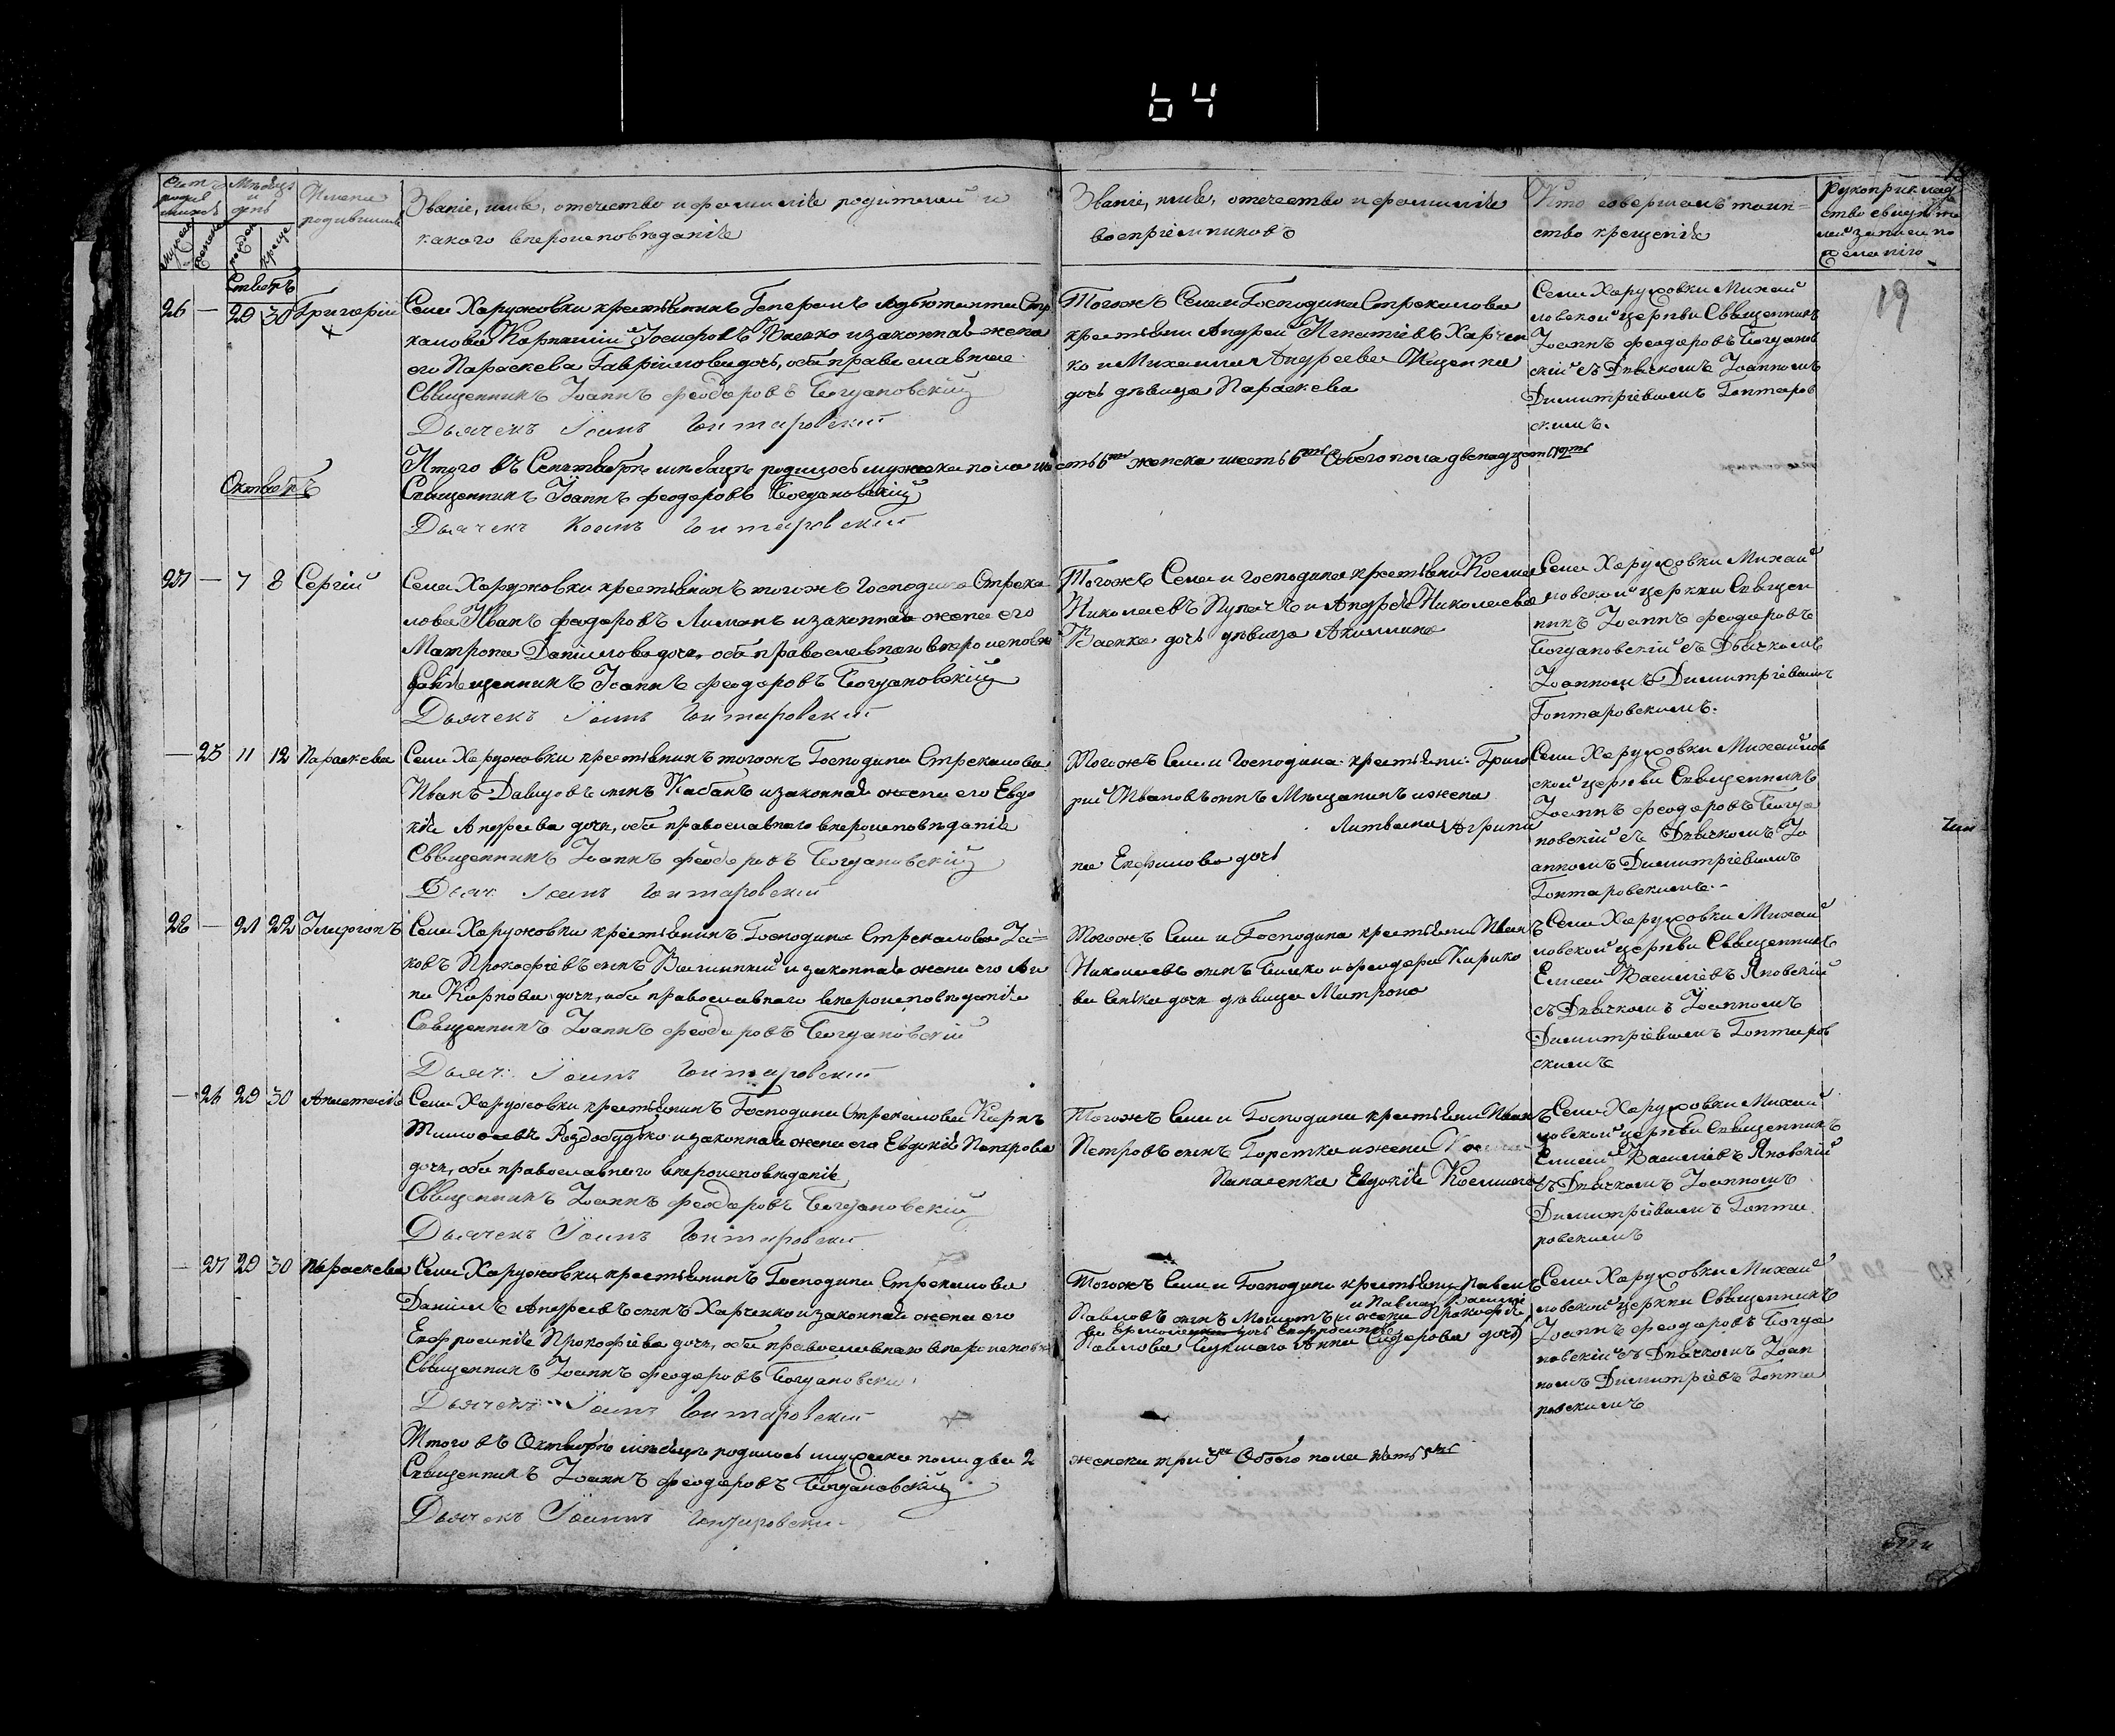 64
19
Счетъ родившихся
Мѣсяцъ и день
Имена родившихся
Званіе, имя, отечество и фамилія родителей и
какого вѣроисповѣданія
Званіе, имя, отечество и фамилія
воспріемниковъ
Кто совершалъ таин-
ство крещенія
Рукоприклад
ство свидѣте
лей записи по
желанію
26 — 29 30 Григорій
Села Харужовки крестьянинъ Генералъ Адъютанта Стре
калова Карпъ Іосифовъ и законная жена
его Параскева Гавріилова дочь, оба православные
Священникъ Іоаннъ Феодоровъ Богдановскій
Дьячекъ Іоанъ Гонтаровскій
Тогожъ Села и Господина Стрекалова
крестьяни Андрей Игнатіевъ Харчен
ко и Михаила Андреева
дочь дѣвица Параскева
Села Харужовки Михай
ловской церкви Священникъ
Іоаннъ Феодоровъ Богданов
скій съ Дьячкомъ Іоанномъ
Димитріевымъ Гонтаров
скимъ.
Итого въ Сентябрѣ мѣсяцѣ родилось мужеска пола шесть 6 женска шесть 6 Обоего пола двенадцать 12
Октябрь
Священникъ Іоаннъ Феодоровъ Богдановскій
Дьячекъ Іоанъ Гонтаровскій
27 — 7 8 Сергій
Села Харужовки крестьянинъ тогожъ Господина Стрека
лова Иванъ Феодоровъ Лиманъ и законная жена его
Матрона Даніилова дочь, оба православнаго вѣроисповѣ
Священникъ Іоаннъ Феодоровъ Богдановскій
Дьячекъ Іоанъ Гонтаровскій
Тогожъ Села и господина крестьяни Косма
Николаевъ и Андрея Николаева
дочь дѣвица Акилина
Села Харужовки Михай
ловской церкви Священ
никъ Іоаннъ Феодоровъ
Богдановскій съ Дьячкомъ
Іоанномъ Димитріевымъ
Гонтаровскимъ.
— 25 11 12 Параскева
Села Харужовки крестьянинъ тогожъ Господина Стрекалова
Иванъ Давидовъ сынъ Кабанъ и законная жена его Евдо
кія Андреева дочь, оба православнаго вѣроисповѣданія
Священникъ Іоаннъ Феодоровъ Богдановскій
Дьяч: Іоанъ Гонтаровскій
Тогожъ Села и Господина крестьяни: Григо
рій Ивановъ сынъ Мѣщанинъ и жена
Литвина Агрипи
на Евфимова дочь
Села Харужовки Михайлов
ской церкви Священникъ
Іоаннъ Феодоровъ Богда
новскій съ Дьячкомъ Іо
анномъ Димитріевымъ
Гонтаровскимъ.
28 — 21 22 Иларіонъ
Села Харужовки крестьянинъ Господина Стрекалова Іа=
ковъ Прокофіевъ сынъ и законная жена его Ан
на Карпова дочь, оба православнаго вѣроисповѣданія
Священникъ Іоаннъ Феодоровъ Богдановскій
Дьяч: Іоанъ Гонтаровскій
Тогожъ Села и Господина крестьяни Иванъ
Николаевъ сынъ и Феодора Кирико
ва дочь дѣвица Матрона
Села Харужовки Михай
ловской церкви Священникъ
Елисей Васильевъ Яновскій
съ Дьячкомъ Іоанномъ
Димитріевымъ Гонтаров
скимъ
— 26 29 30 Анастасія
Села Харужовки крестьянинъ Господина Стрекалова Карпъ
Тимофеевъ Роздобудько и законная жена его Евдокія Петрова
дочь, оба православнаго вѣроисповѣданія
Священникъ Іоаннъ Феодоровъ Богдановскій
Дьячекъ Іоанъ Гонтаровскій
Тогожъ Села и Господина крестьяни Иванъ
Петровъ сынъ Горстка и жена
Евдокія Космина
Села Харужовки Михай
ловской церкви Священникъ
Елисей Васильевъ Яновскій
съ Дьячкомъ Іоанномъ
Димитріевымъ Гонта
ровскимъ
— 27 29 30 Параскева
Села Харужовки крестьянинъ Господина Стрекалова
Даніилъ Андреевъ сынъ Харченко и законная жена его
Евфросинія Прокофіева дочь, оба православнаго вѣроисповѣ
Священникъ Іоаннъ Феодоровъ Богдановскій
Дьячекъ Іоанъ Гонтаровскій
Тогожъ Села и Господина крестьяни Павелъ
Павловъ сынъ и жена
Павлова Анна Сидорова дочь
Села Харужовки Михай
ловской церкви Священникъ
Іоаннъ Феодоровъ Богда
новскій съ Дьячкомъ Іоан
номъ Димитріевъ Гонта
ровскимъ
Итого въ Октябрѣ мѣсяцѣ родилось мужеска пола два 2 женска три 3 Обоего пола пять 5
Священникъ Іоаннъ Феодоровъ Богдановскій
Дьячекъ Іоаннъ Гонтаровскій